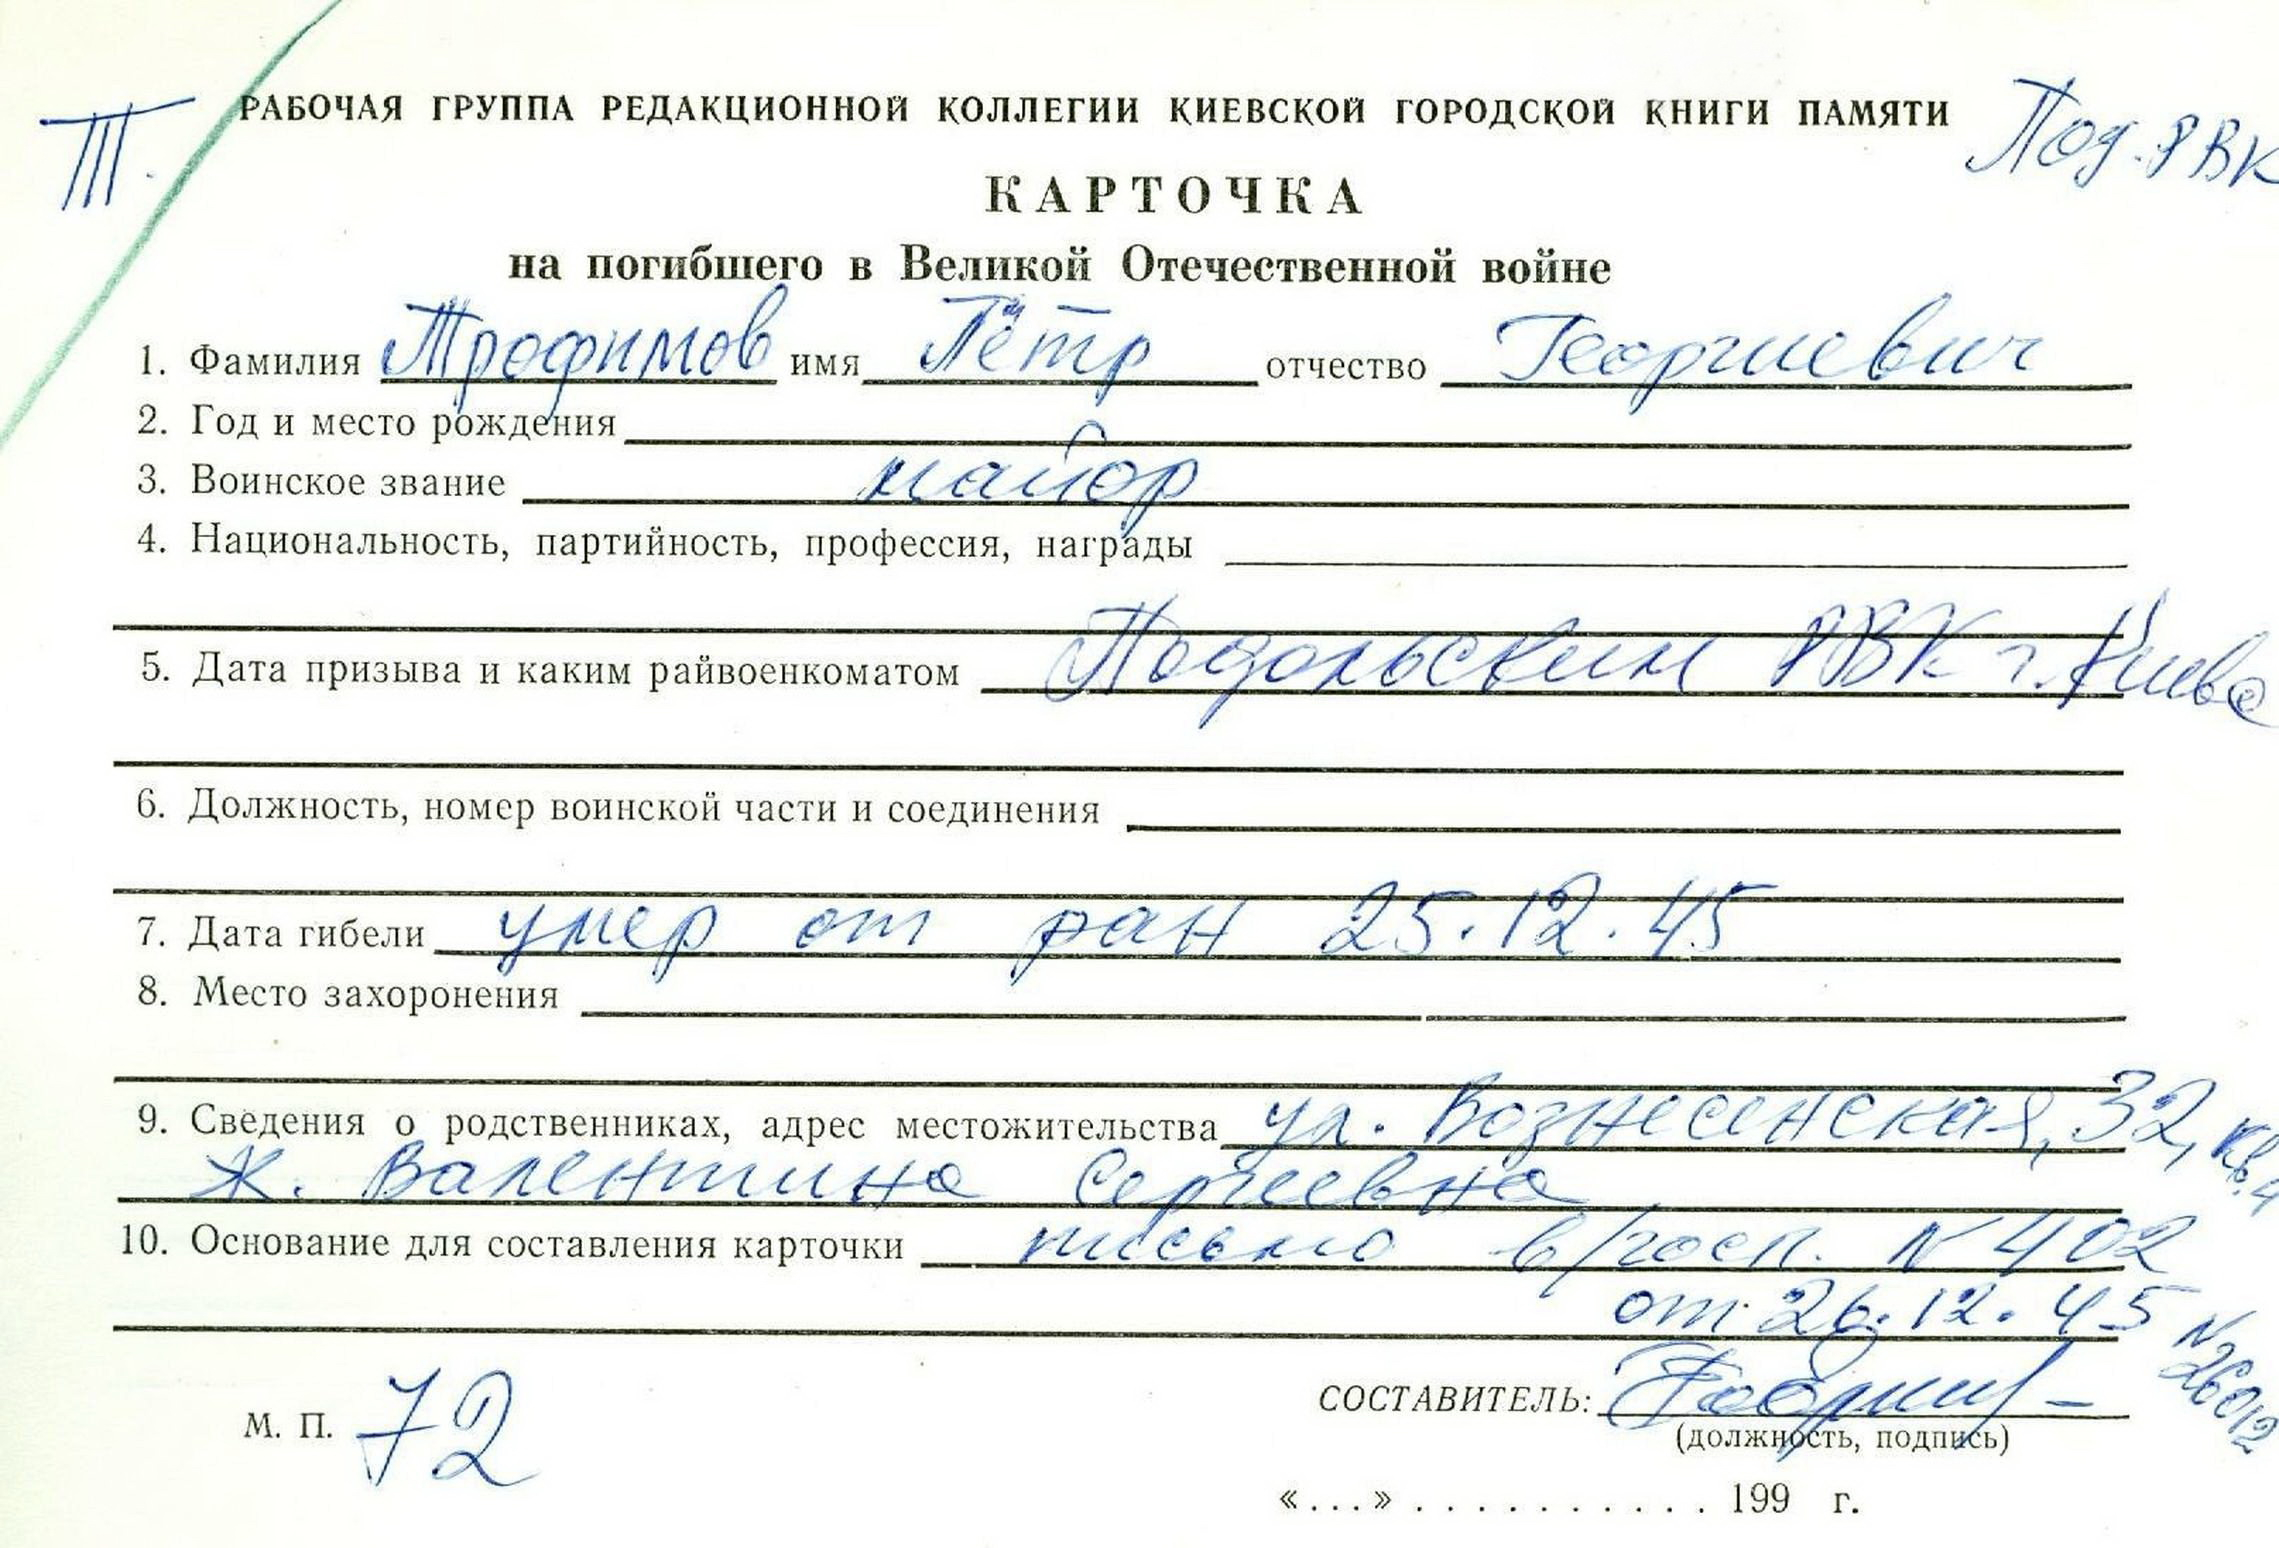 Т. РАБОЧАЯ ГРУППА РЕДАКЦИОННОЙ КОЛЛЕГИИ КИЕВСКОЙ ГОРОДСКОЙ КНИГИ ПАМЯТИ Под. РВК
КАРТОЧКА
на погибшего в Великой Отечественной войне
1. Фамилия Трофимов имя Пётр отчество Георгиевич
2. Год и место рождения
3. Воинское звание майор
4. Национальность, партийность, профессия, награды
5. Дата призыва и каким райвоенкоматом Подольским РВК г. Киева
6. Должность, номер воинской части и соединения
7. Дата гибели умер от ран 25.12.45
8. Место захоронения
9. Сведения о родственниках, адрес местожительства ул. Вознесенская, 32, кв. 4
ж. Валентина Сергеевна
10. Основание для составления карточки письмо в/госп. N 402
от 26.12.45 N 26012
СОСТАВИТЕЛЬ:
М. П. 72
(должность, подпись)
«...» . . . . . . . . . . . 199 г.